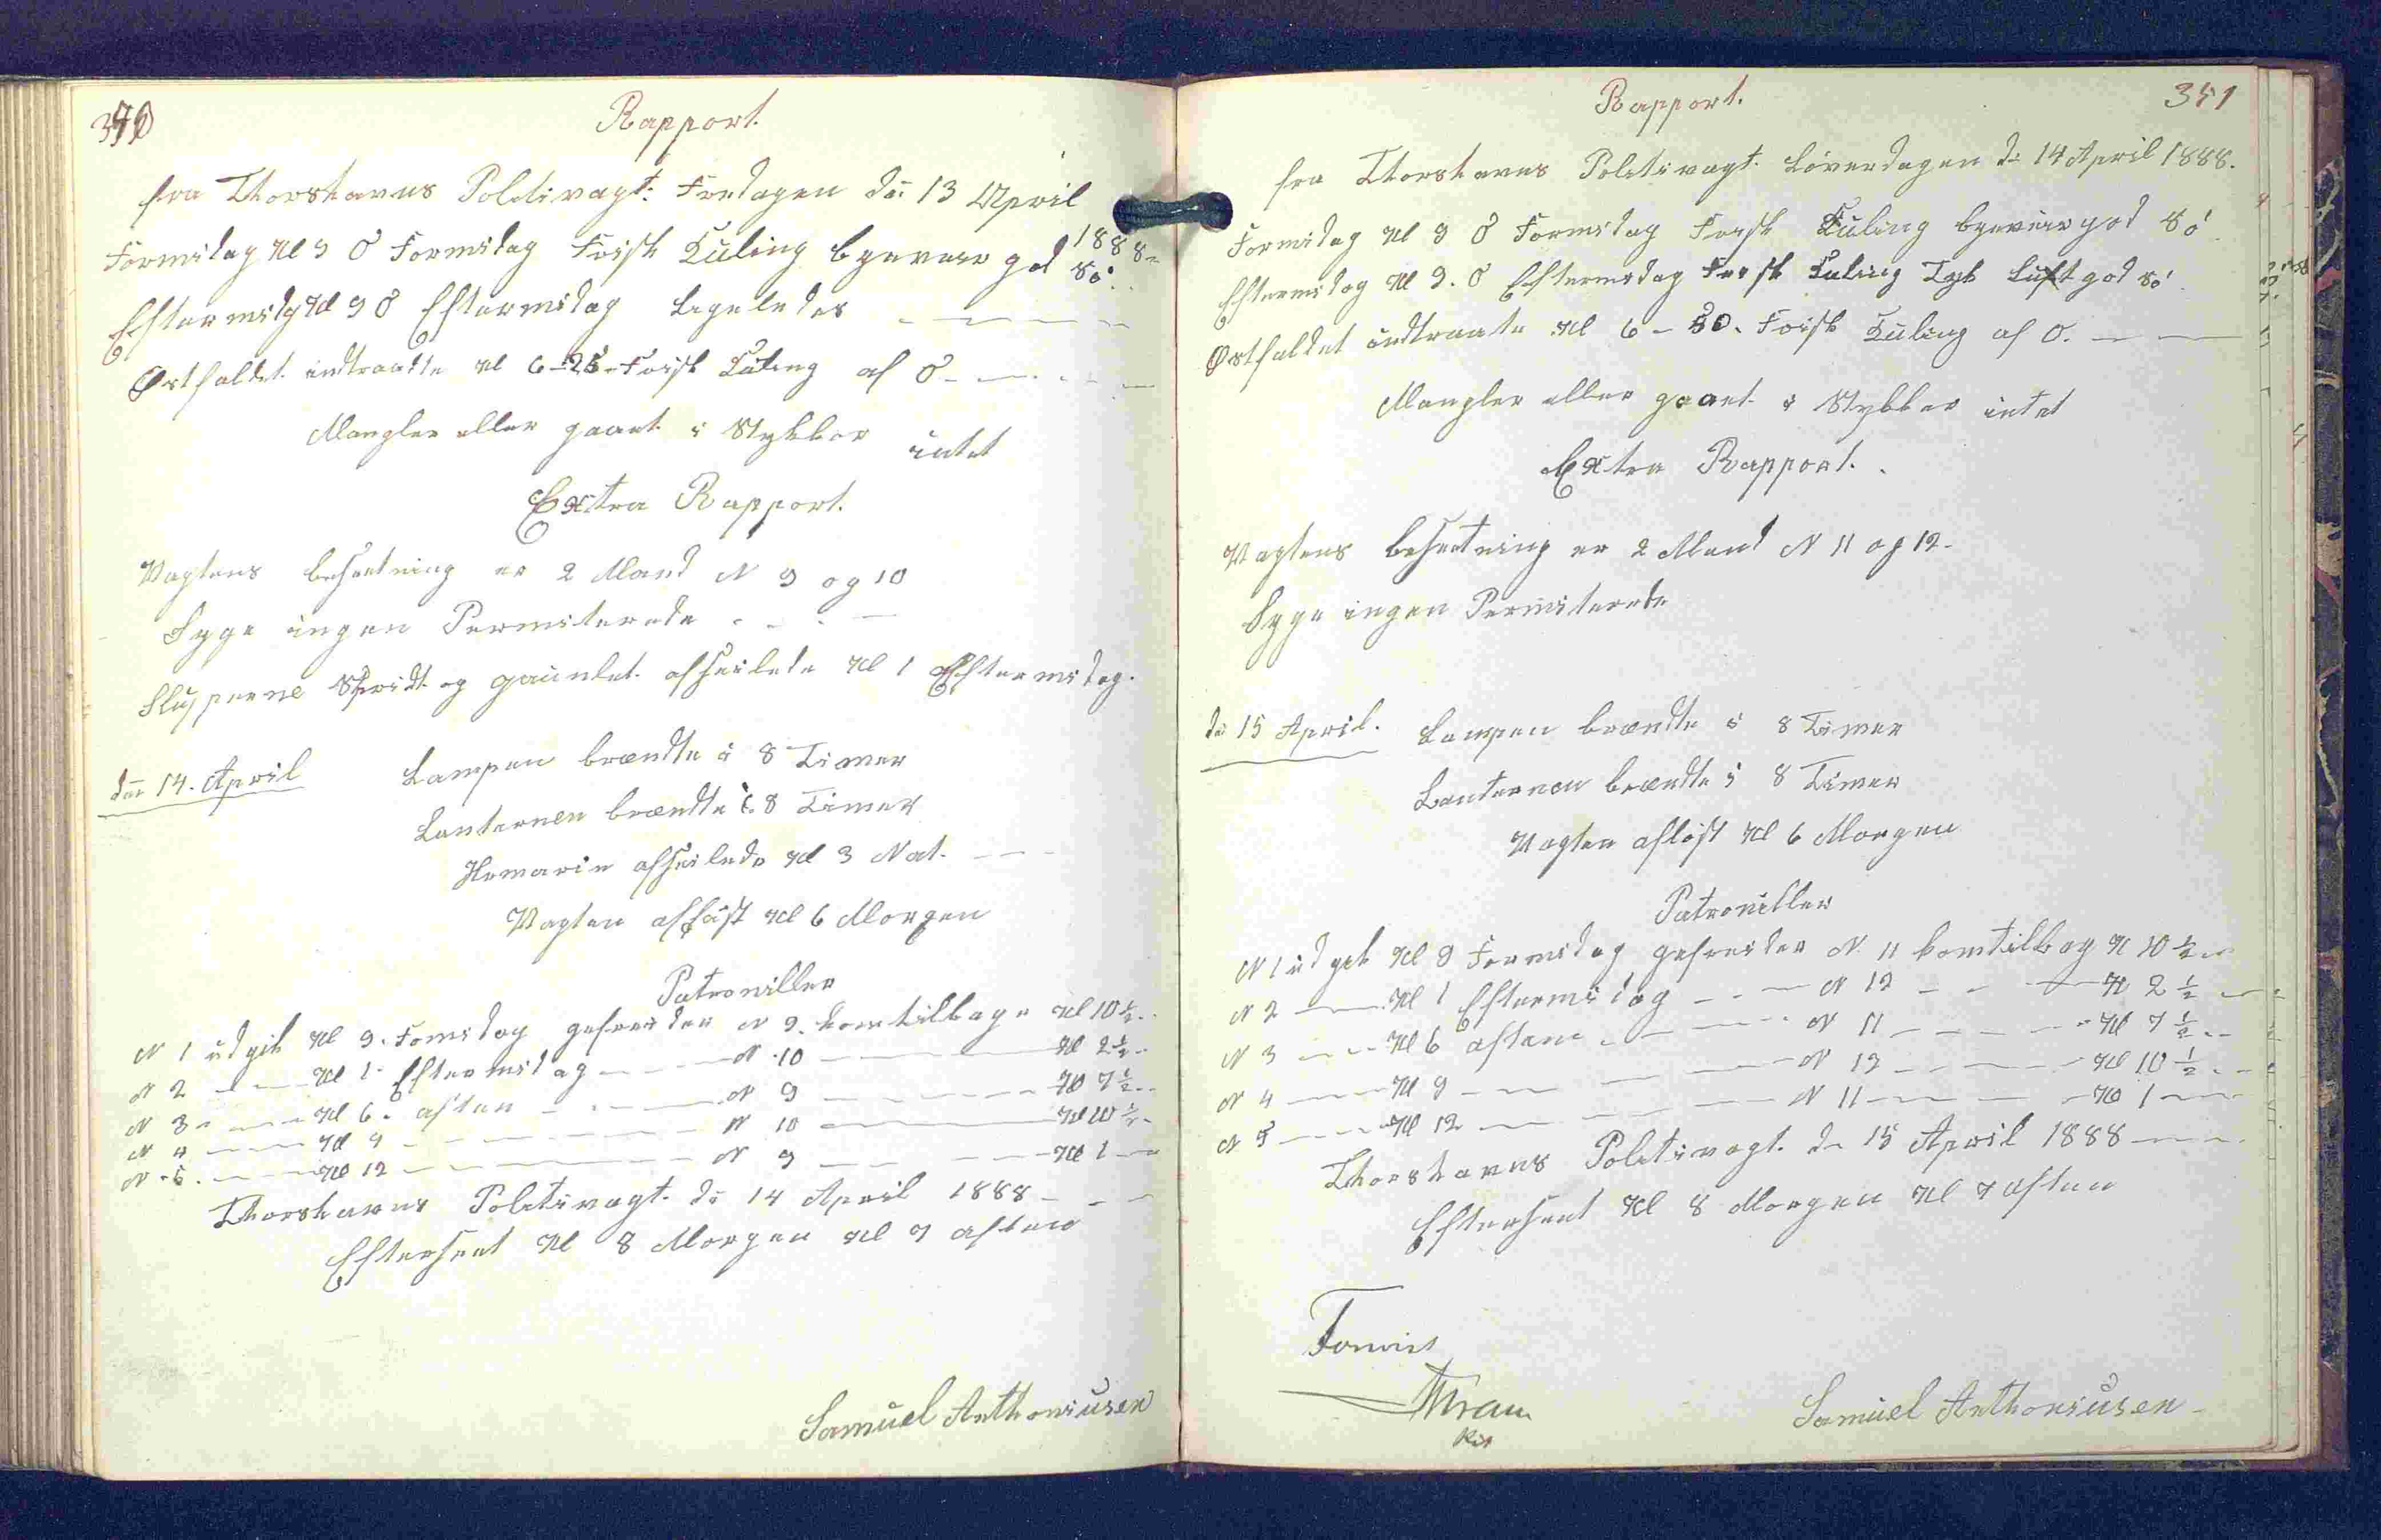 Rapport.
fra Thorshavns Politivagt. Fredagen d: 13 April
1888
Formidag Kl 9 O Formidag Frisk Kuling bgeveir god Sö.
Eftermidg Kl 9 O Eftermidag ligeledes
Østfaldet indtraadte Kl 6-25 Frisk Kuling af O
Mangler eller gaaet i Stykker intet
Extra Rapport.
Vagtens besætning er 2 Mand N 9 og 10
Syge ingen Permiterede
Slupperne og afseilede Kl 1 Eftermidag.
den 14. April Lampen brændte i 8 Timer
Lanternen brændte i 8 Timer
afseilede Kl 3 Nat.
Vagten afløst Kl 6 Morgen
Patrouiller
N 1 udgik Kl 9. Fomidag gefreider N 9. kom tilbage Kl 10½
N 2 Kl 1 Eftermidag N 10 Kl 2½
N 3 Kl 6. aften N 9 Kl 7½
N 4 Kl 9 N 10 Kl 10½
N 5. Kl 12 N 9 Kl 1
Thorshavns Politivagt. d: 14 April 1888
Efterseet Kl 8 Morgen Kl 7 aften
Samuel Anthoniusen
Rapport. 351
fra Thorshavns Politivagt. Löverdagen d: 14 April 1888.
Formidag Kl 9 O Formidag Frisk Kuling bgeveir god Sö
Eftermidag Kl 9. O Eftermidag Frisk Kuling Tyk Luft god Sö.
Østfaldet indtraate Kl 6-50. Frisk Kuling af O.
Mangler eller gaaet i Stykker intet
Extra Rapport.
Vagtens besætning er 2 Mand N 11 og 12.
Syge ingen Permiterede
d: 15 April. Lampen brændte i 8 Timer
Lanternen brændte i 8 Timer
Vagten afløst Kl 6 Morgen
Patrouiller
N 1 udgik Kl 9 Formidag gefreider N. 11 kom tilbag Kl 10½
N 2 Kl 1 Eftermidag N 12 Kl 2½
N 3 Kl 6 aften N 11 Kl 7½
N 4 Kl 9 N 12 Kl 10½
N 5 Kl 12 N 11 Kl 1
Thorshavns Politivagt. d: 15 April 1888
Efterseet Kl 8 Morgen Kl 7 aften
Samuel Anthoniusen